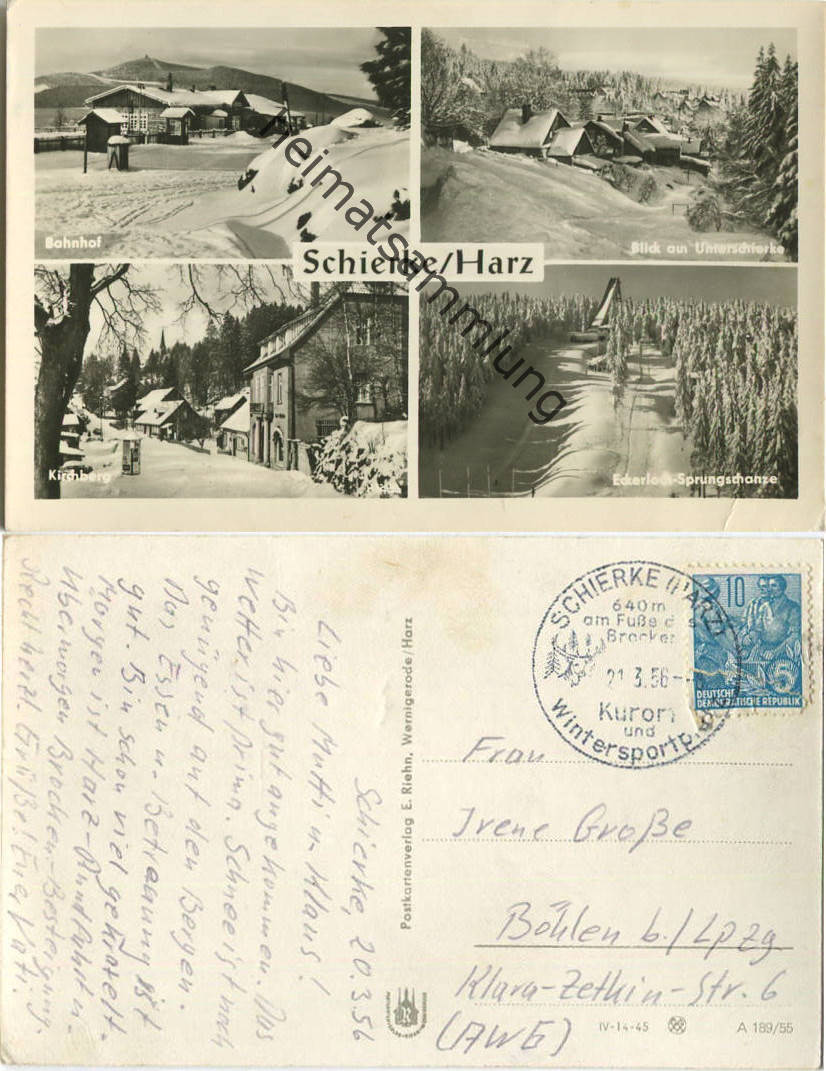 Bahnhof
Blick auf Unterschierke
Schierke/Harz
Kirchberg
Eckerloch-Sprungschanze
heimatsammlung
Schierke, 20.3.56
Liebe Mutti u. Klaus!
Bin hier gut angekommen. Das
Wetter ist prima. Schnee ist noch
genügend auf den Bergen.
Das Essen u. Betreuung ist
gut. Bin schon viel gekraxelt.
Morgen ist Harz-Rundfahrt u.
Übermorgen Brocken-Besteigung.
Recht herzl. Grüße! Eue, Vati.
Postkartenverlag E. Riehn, Wernigerode/Harz
SCHIERKE (HARZ)
640 m
am Fuße des
Brocken
21.3.56
Kurort
und
Wintersportpl
10
DEUTSCHE
DEMOKRATISCHE REPUBLIK
Frau
Irene Große
Böhlen b./Lpzg
Klara-Zetkin-Str. 6
(AWG)
IV-14-45
A 189/55